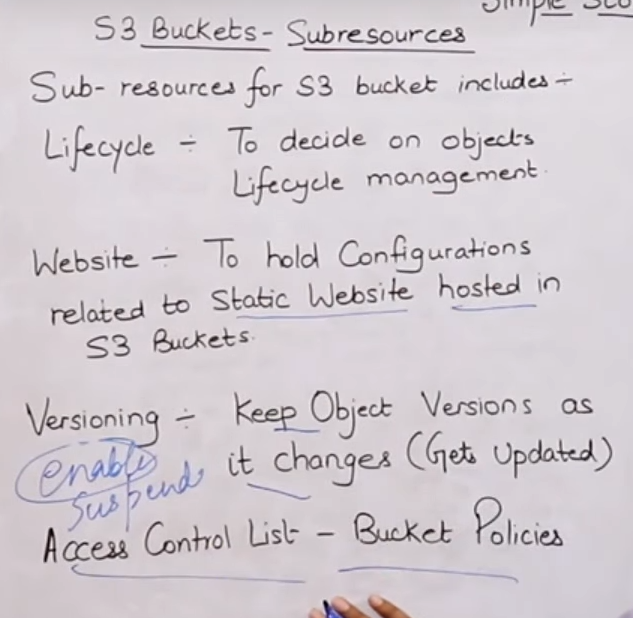 Simple Sto
S3 Buckets - Subresources
Sub-resources for S3 bucket includes ÷
Lifecycle ÷ To decide on objects
Lifecycle management.
Website ÷ To hold Configurations
related to Static Website hosted in
S3 Buckets.
Versioning ÷ Keep Object Versions as
enable it changes (Gets Updated)
suspend
Access Control List - Bucket Policies